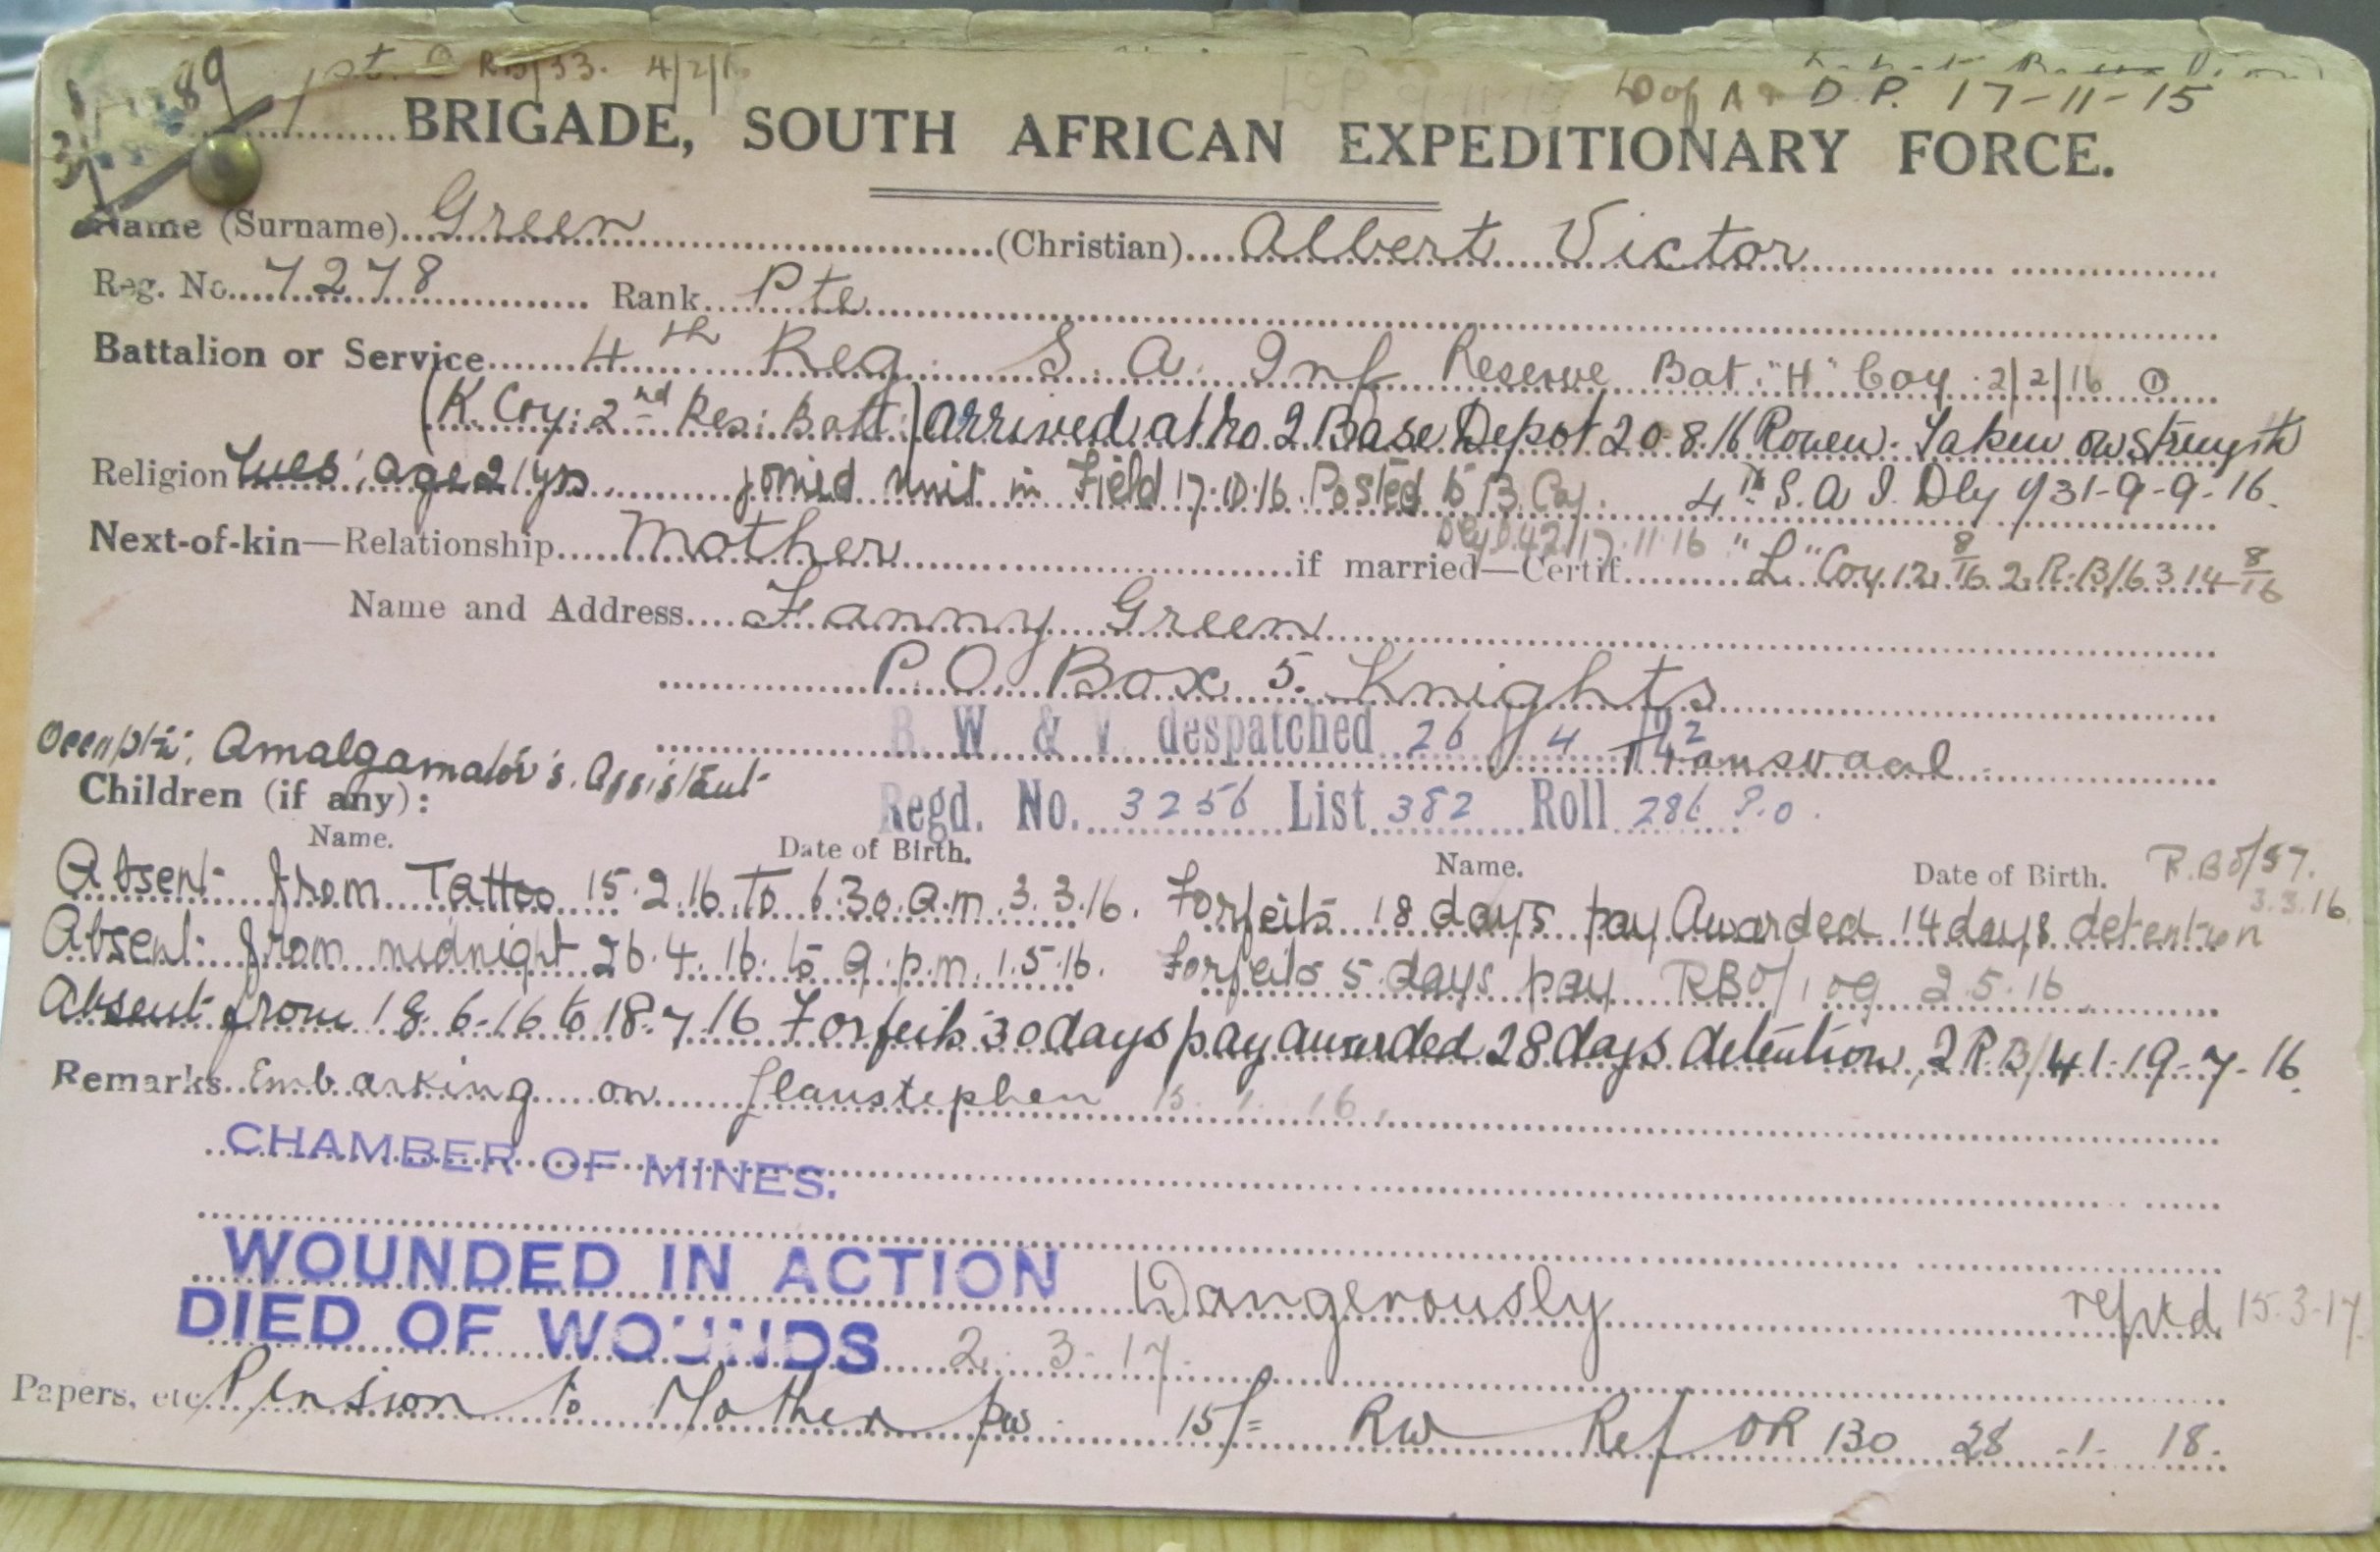 89 1st. RB/33. 4/2/16 D.P. 17-11-15
BRIGADE, SOUTH AFRICAN EXPEDITIONARY FORCE.
Name (Surname) Green (Christian) Albert Victor
Reg. No. 7278 Rank Pte
Battalion or Service 4th Reg. S. A. Inf Reserve Bat. "H" Coy. 2/2/16 ①
(K. Coy: 2nd Res: Batt) arrived at No. 2 Base Depot 20.8.16 Rouen. Taken on strength
Religion Wes; aged 21 yrs joined unit in Field 17.10.16. Posted to B. Coy. 4th S.A.I. Dly 31-9-9-16.
Dly D.42/17.11.16
Next-of-kin—Relationship Mother if married—Certif. "L" Coy. 12 8/16. 2.R.B/63 14 8/16
Name and Address Fanny Green
P.O. Box 5. Knights
B. W. & V. despatched 26 4 Transvaal
Amalgamator's Assistant
Children (if any):
Regd. No. 3256 List 382 Roll 286 P.O.
Name. Date of Birth. Name. Date of Birth. R.BO/57. 3.3.16
Absent from Tattoo 15.2.16 to 6.30 a.m. 3.3.16. Forfeits 18 days pay Awarded 14 days detention
Absent from midnight 26.4.16. to 9 p.m. 1.5.16. Forfeits 5 days pay RBO/109 2.5.16
Absent from 18.6.16 to 18.7.16 Forfeits 30 days pay awarded 28 days detention, 2 R.B/41.19-7-16.
Remarks Embarking on Llanstephen 15. 1. 16.
CHAMBER OF MINES.
WOUNDED IN ACTION Dangerously reptd 15.3.17.
DIED OF WOUNDS 2. 3. 17.
Papers, etc. Pension to Mother pw. 15/= RW Ref OR 130 28 .1. 18.